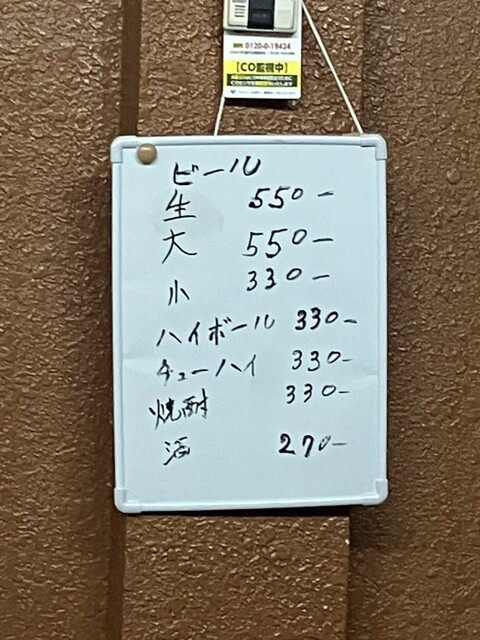 0120-0-19424
【CO監視中】
ビール
生 550-
大 550-
小 330-
ハイボール 330-
チューハイ 330-
焼酎 330-
酒 270-